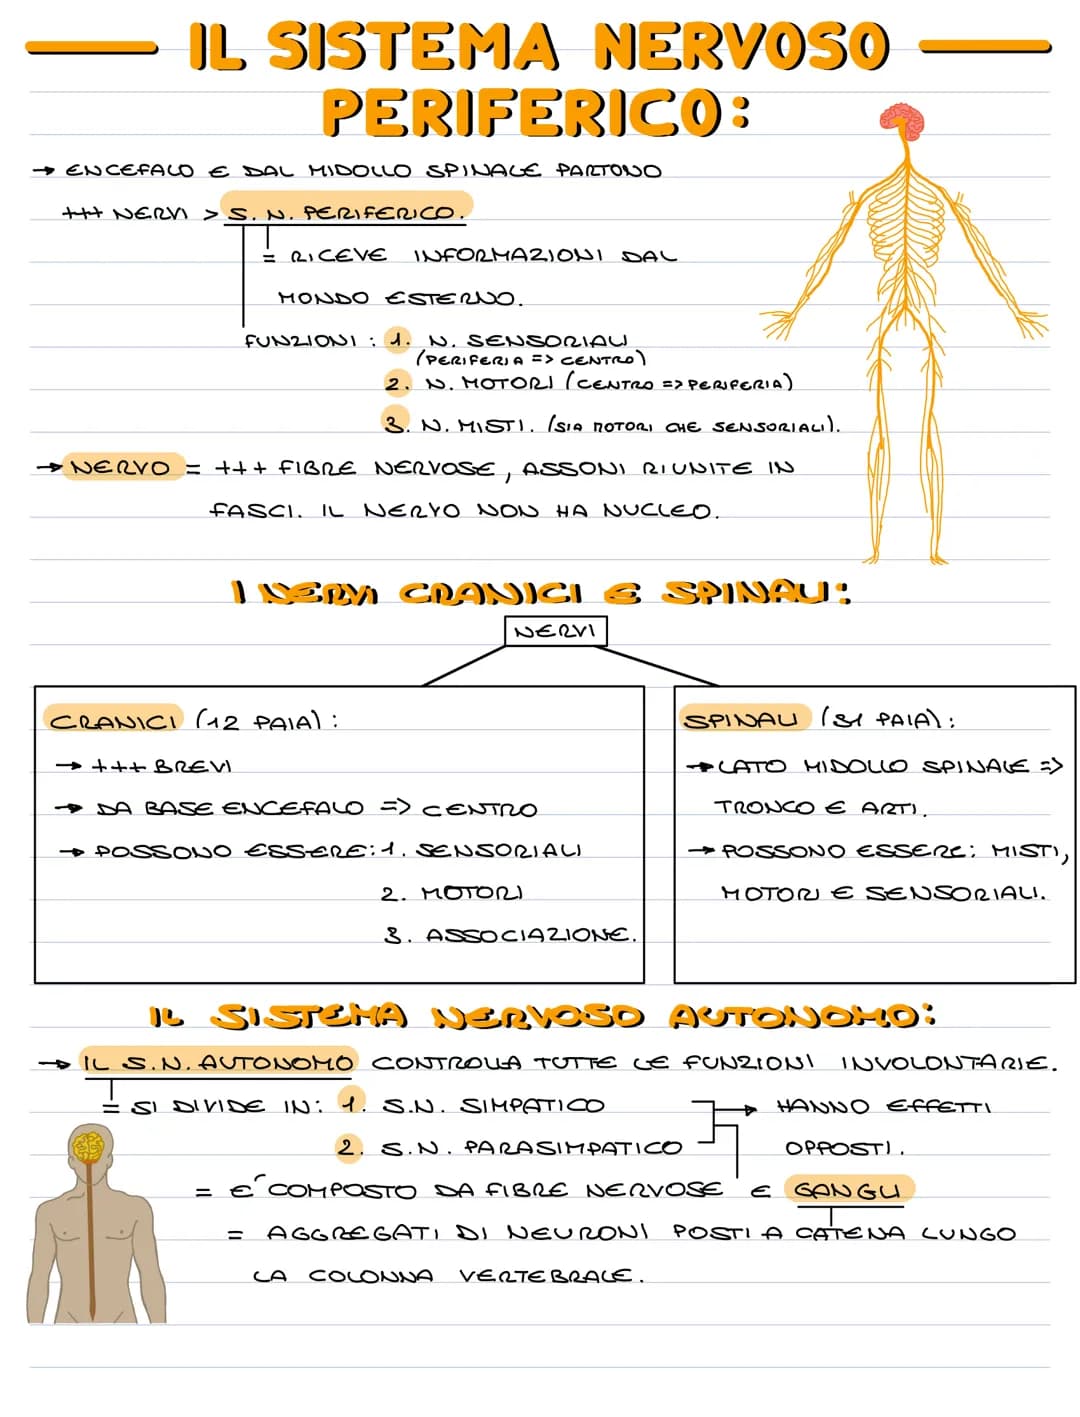 IL SISTEMA NERVOSO
PERIFERICO:
→ ENCEFALO E DAL MIDOLLO SPINALE PARTONO
+++ NERVI > S. N. PERIFERICO.
= RICEVE INFORMAZIONI DAL
MONDO ESTERNO.
FUNZIONI : 1. N. SENSORIALI
(PERIFERIA => CENTRO)
2. N. MOTORI (CENTRO => PERIFERIA)
3. N. MISTI. (SIA MOTORI CHE SENSORIALI).
→ NERVO = +++ FIBRE NERVOSE, ASSONI RIUNITE IN
FASCI. IL NERVO NON HA NUCLEO.
I NERVI CRANICI E SPINALI:
NERVI
CRANICI (12 PAIA) :
→ +++ BREVI
→ DA BASE ENCEFALO => CENTRO
→ POSSONO ESSERE: 1. SENSORIALI
2. MOTORI
3. ASSOCIAZIONE.
SPINALI (31 PAIA):
→ LATO MIDOLLO SPINALE =>
TRONCO E ARTI.
→ POSSONO ESSERE: MISTI,
MOTORI E SENSORIALI.
IL SISTEMA NERVOSO AUTONOMO:
→ IL S.N. AUTONOMO CONTROLLA TUTTE LE FUNZIONI INVOLONTARIE.
= SI DIVIDE IN: 1. S.N. SIMPATICO → HANNO EFFETTI
2. S.N. PARASIMPATICO OPPOSTI.
= E' COMPOSTO DA FIBRE NERVOSE E GANGLI
= AGGREGATI DI NEURONI POSTI A CATENA LUNGO
LA COLONNA VERTEBRALE.